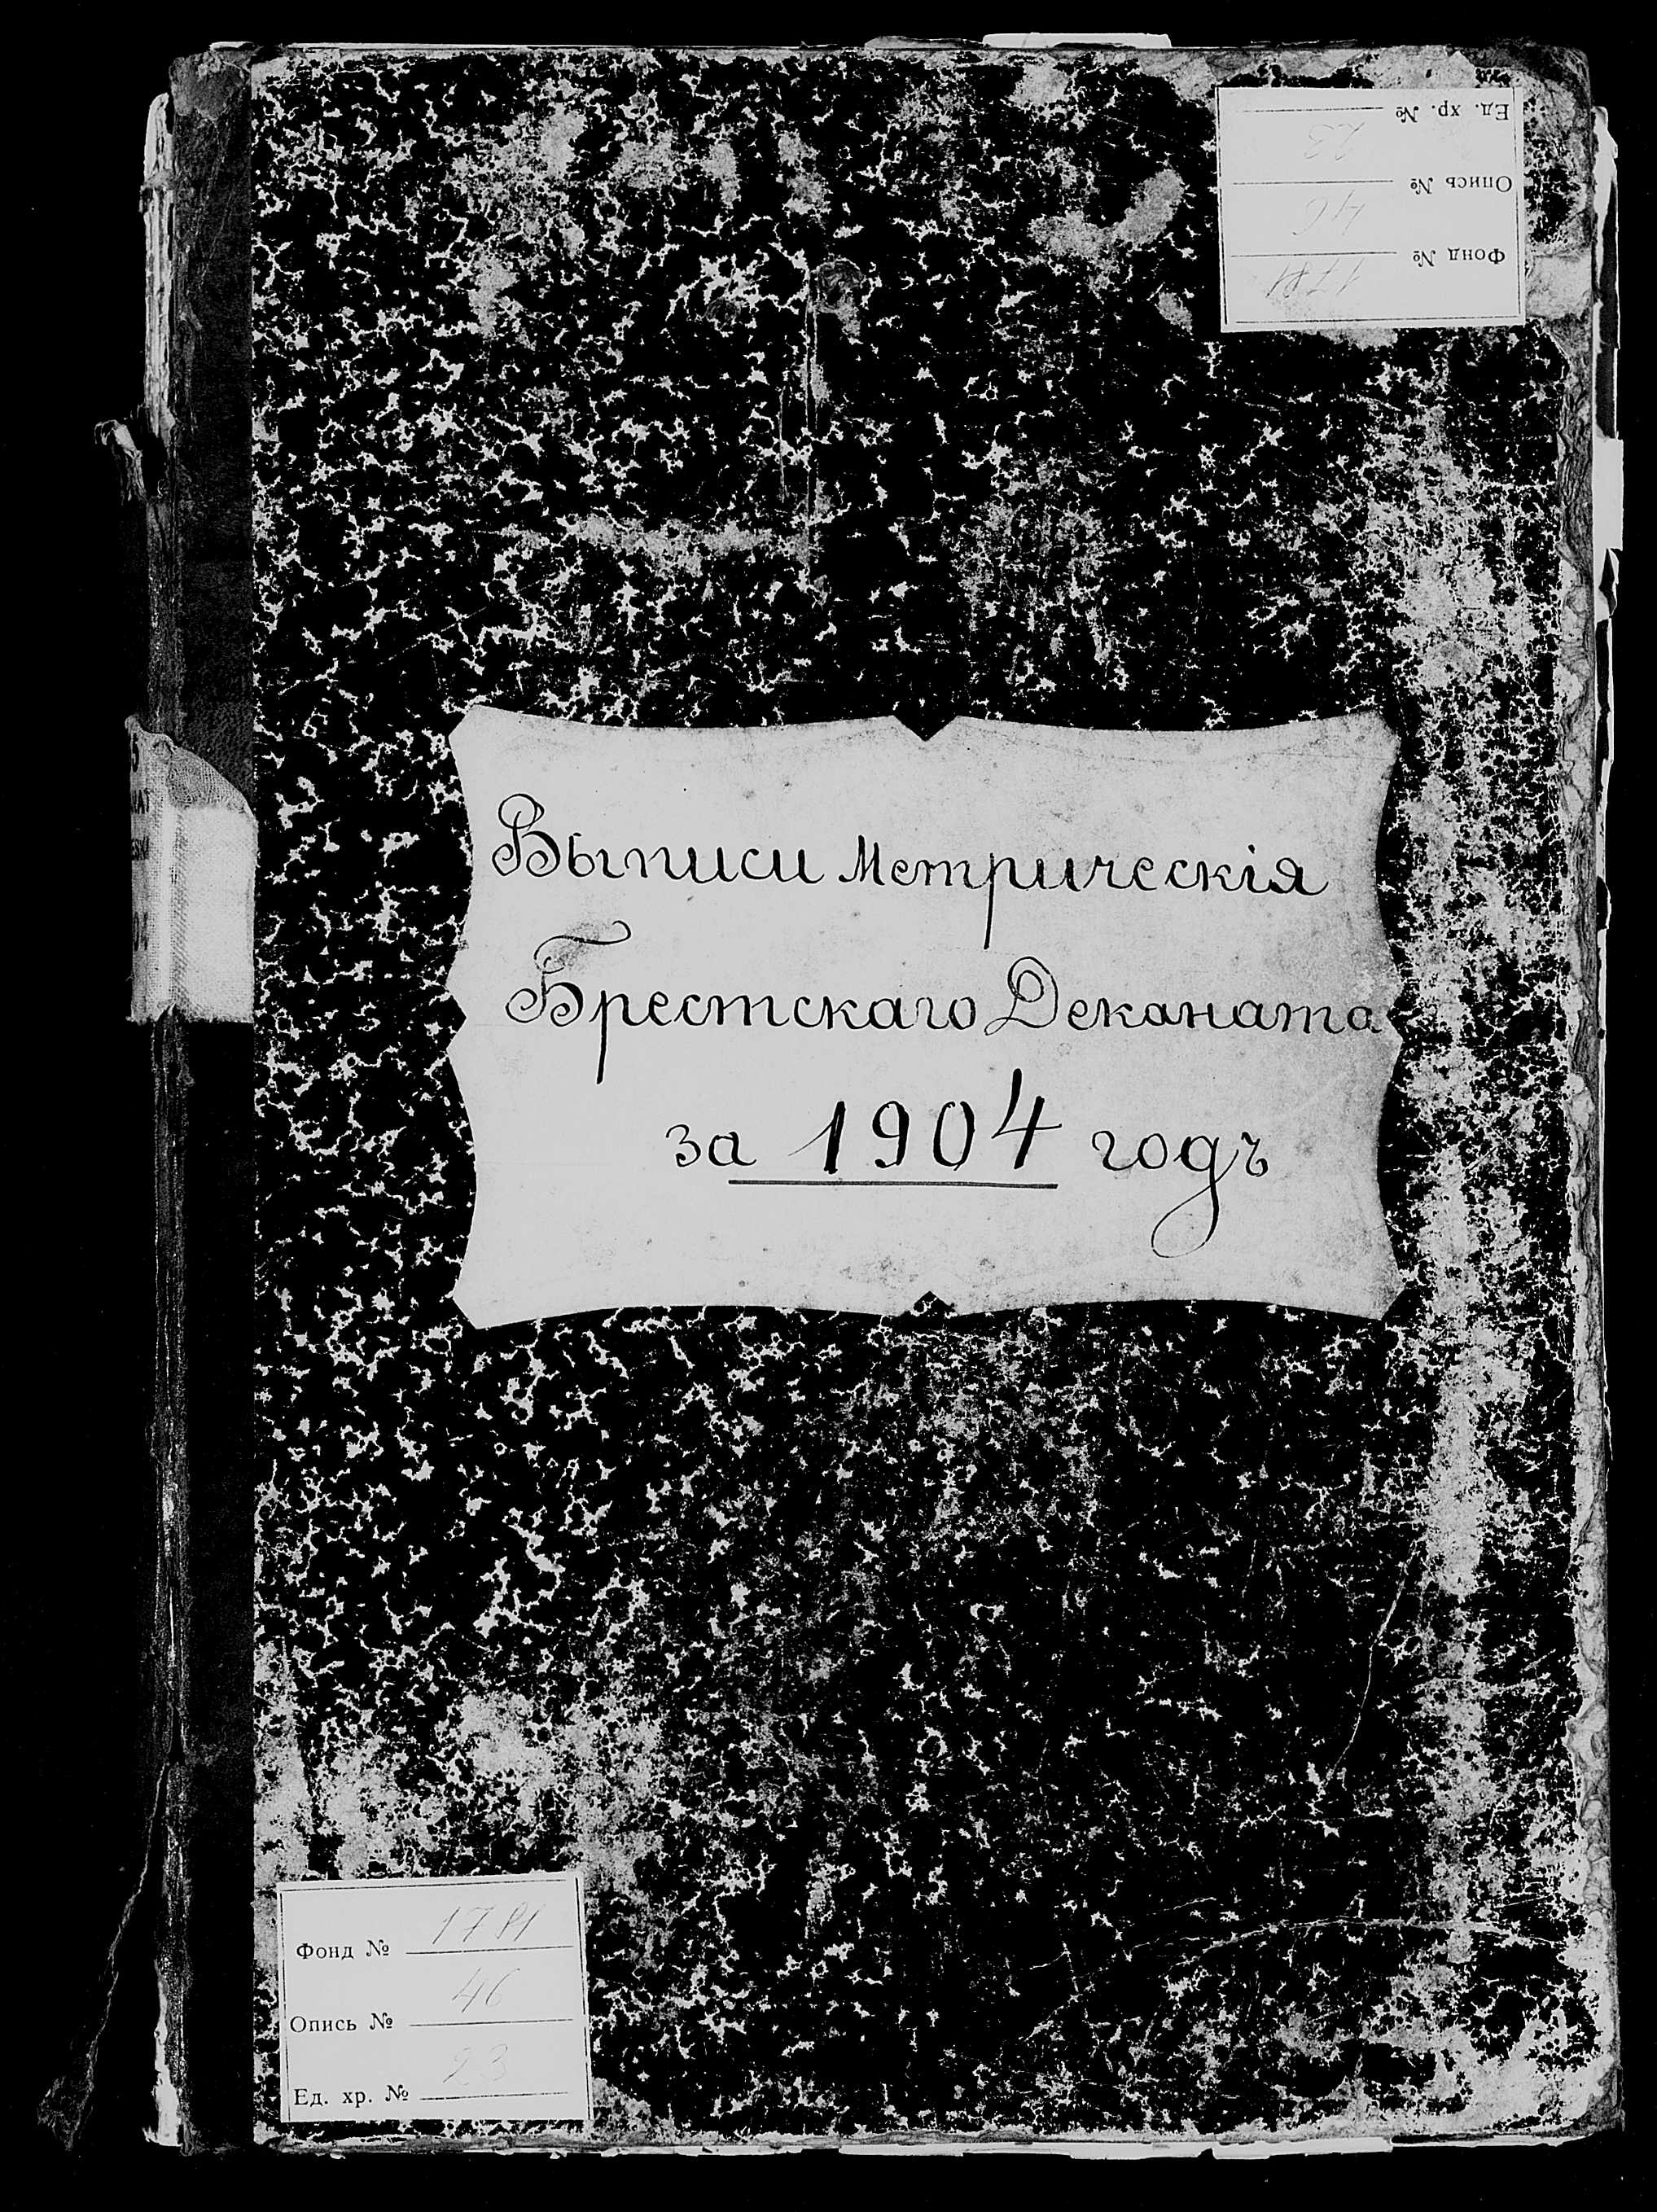 Ед. хр. № 23
Опись № 46
Фонд № 1781
Выписи Метрическія
Брестскаго Деканата
за 1904 годъ
Фонд № 1781
Опись № 46
Ед. хр. № 23